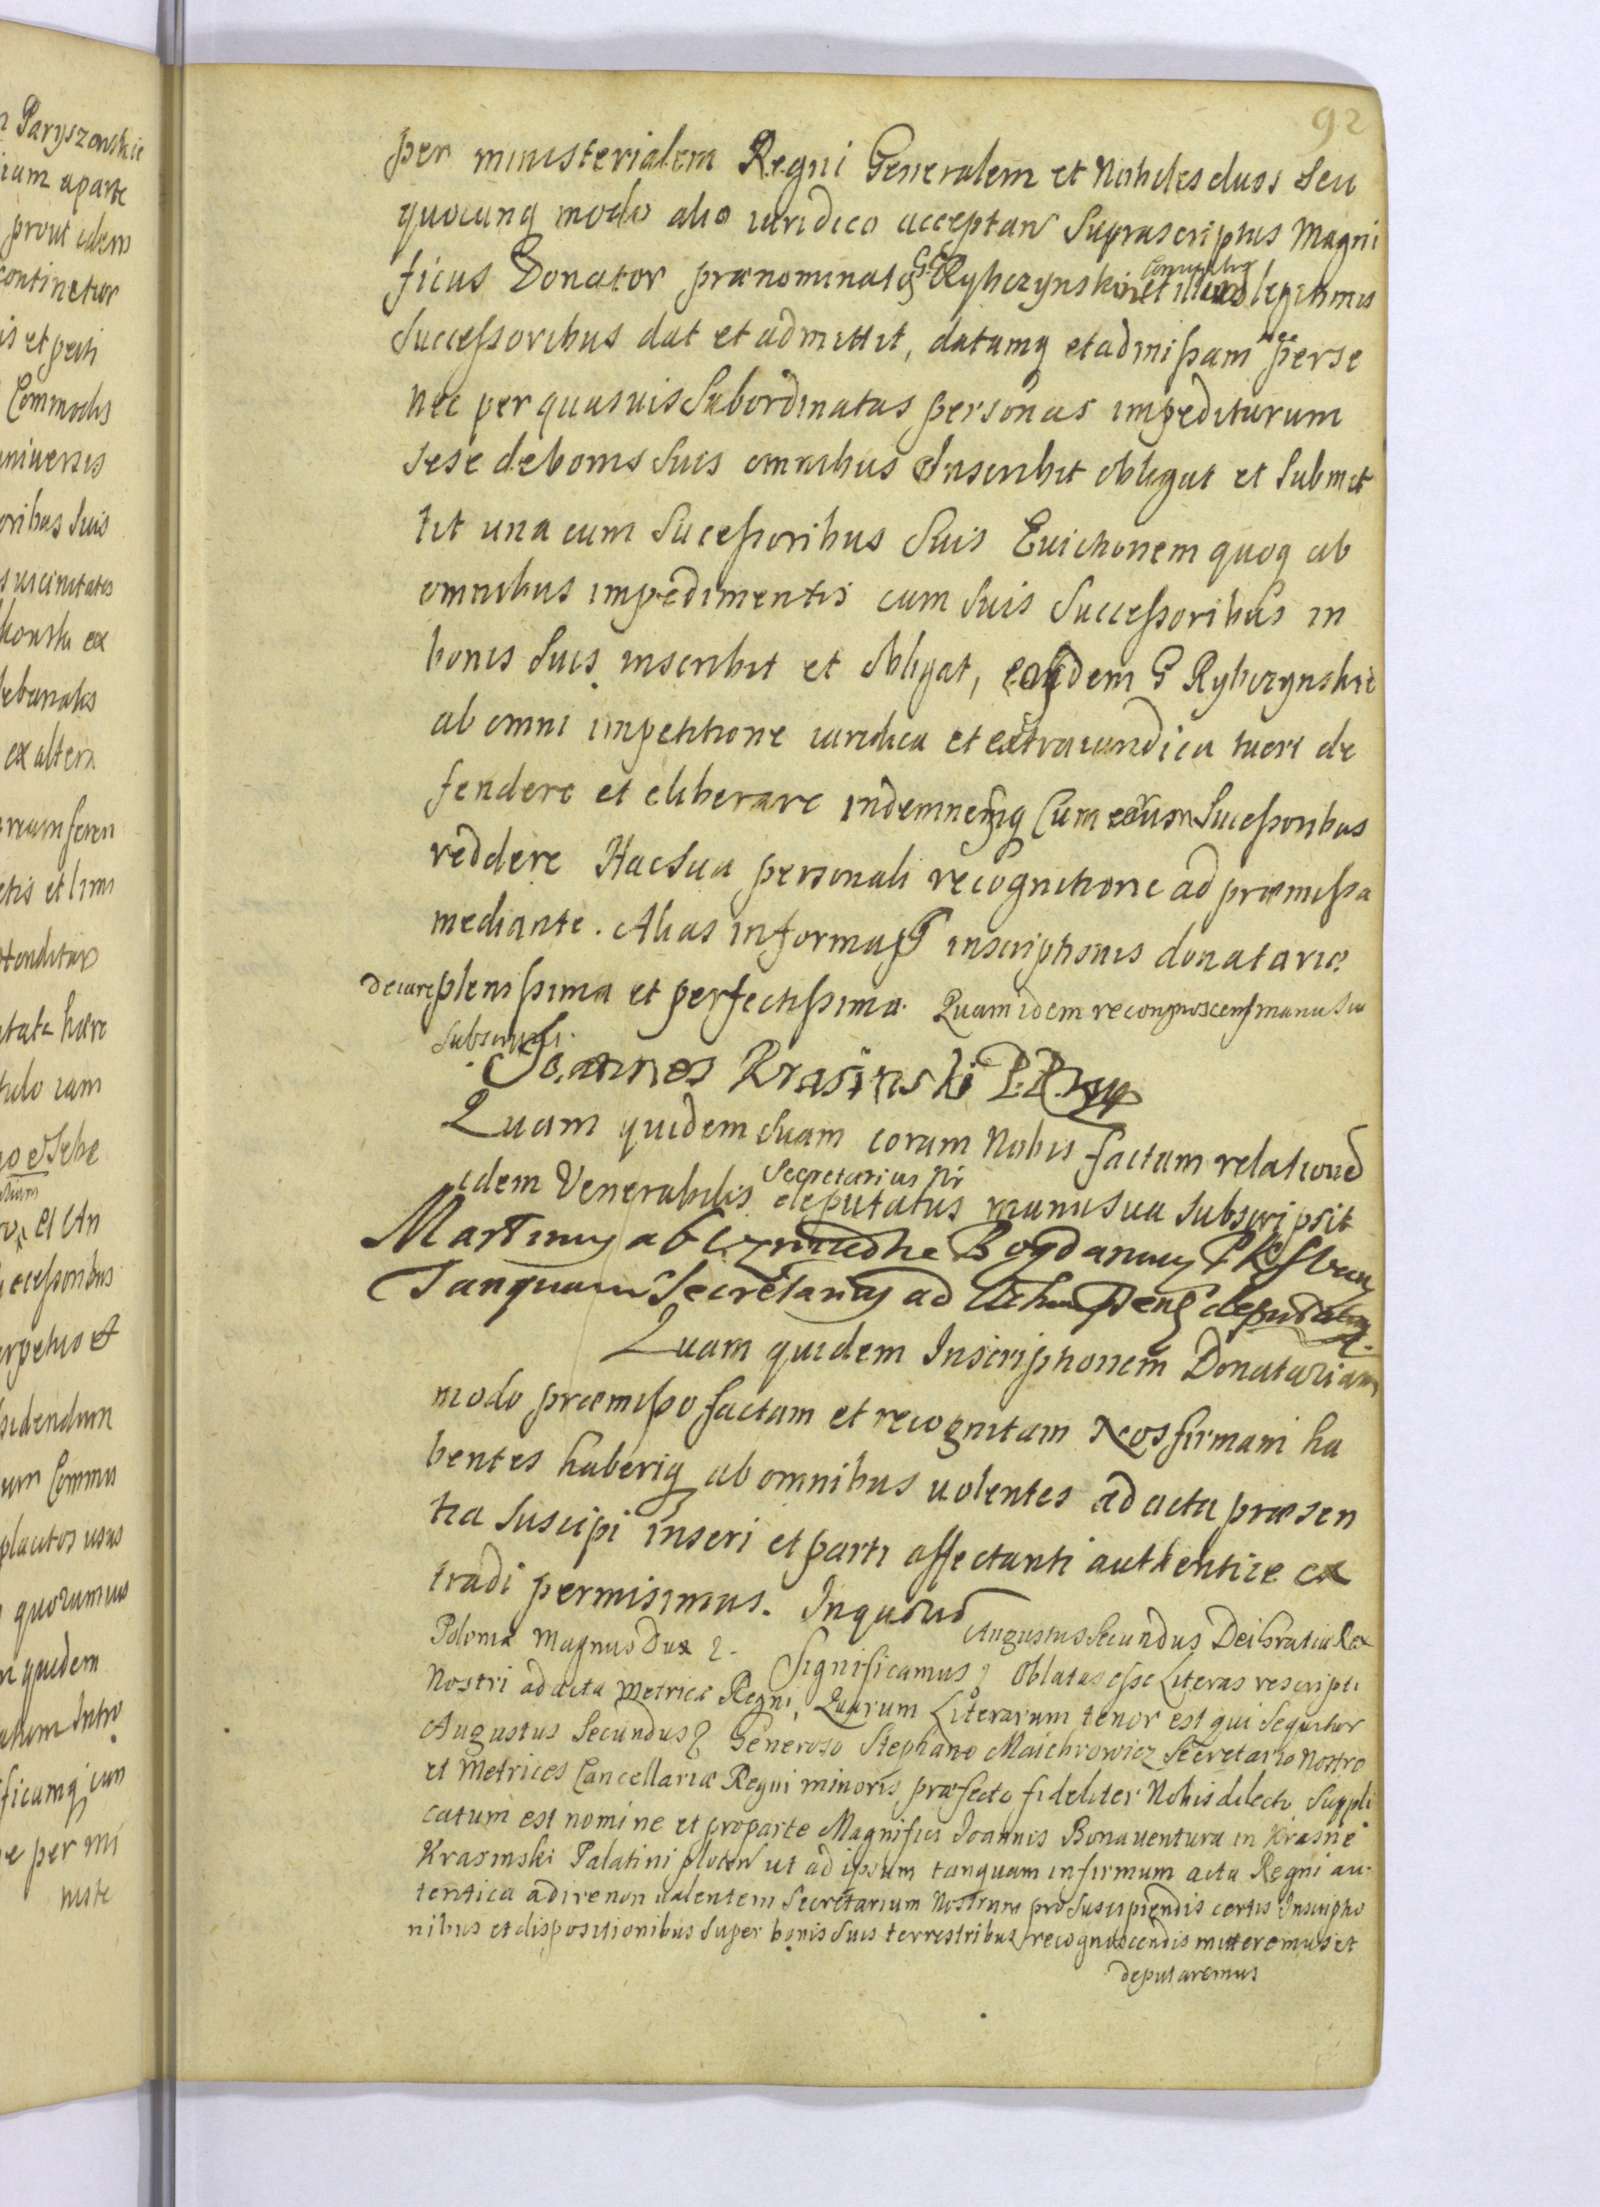 92
per ministerialem Regni Generalem et Nobiles duos Seu
quocunq modo alio iuridico acceptan Suprascriptus Magni
ficus Donator prænominatos GG Rybczynskie et illius legitimis
Successoribus dat et admittit, datamq et admissam nec per se
nec per quasuis Subordinatas personas impediturum
sese de bonis Suis omnibus Inscribit obligat et Submit
tit una cum Sucessoribus Suis Euictionem quoq ab
omnibus impedimentis cum Suis Successoribus in
bonis Suis inscribit et obligat, eosdem G Rybczynskie
ab omni impetitione iuridica et extraiuridica tueri de
fendere et eliberare indemnesq Cum eorum Sucessoribus
reddere Hac Sua personali recognitione ad præmissa
mediante. Alias in forma inscriptionis donatariæ
de iure plenissima et perfectissima. Quam idem recongnoscens manu Sua
Subscripsit.
Joannes Krasinski P. P. mp
Quam quidem Suam coram Nobis factam relationem
idem Venerabilis Secretarius Nr deputatus manu sua Subscripsit
Martinus a Bogdanus
Tanquam Secretarius ad Actum deputatus
Quam quidem Inscriptionem Donatariam
modo præmisso factam et recognitam Nos firmam ha
bentes haberiq ab omnibus uolentes ad acta præsen
tia Suscipi inseri et parti affectanti authentice ex
tradi permisimus. In quorum
Augustus Secundus Dei Gratia Rex
Poloniæ Magnus Dux
Significamus Oblatas esse Literas rescripti
Nostri ad acta Metricæ Regni, Quarum Literarum tenor est qui Sequitur
Augustus Secundus Generoso Stephano Maichrowicz Secretario Nostro
et Metrices Cancellariæ Regni minoris præfecto fideliter Nobis dilecto Suppli
catum est nomine et pro parte Magnifici Joannis Bonauentura in Krasne
Krasinski Palatini plocen ut ad ipsum tanquam infirmum acta Regni au-
tentica adire non ualentem Secretarium Nostrum pro Suscipiendis certis Inscriptio
nibus et dispositionibus Super bonis Suis terrestribus recognoscendis mitteremus et
deputaremus